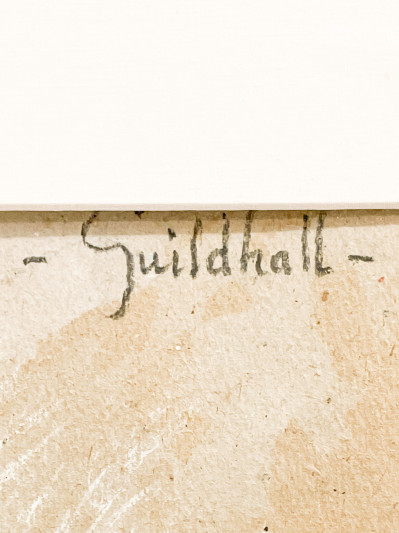 - Guildhall -